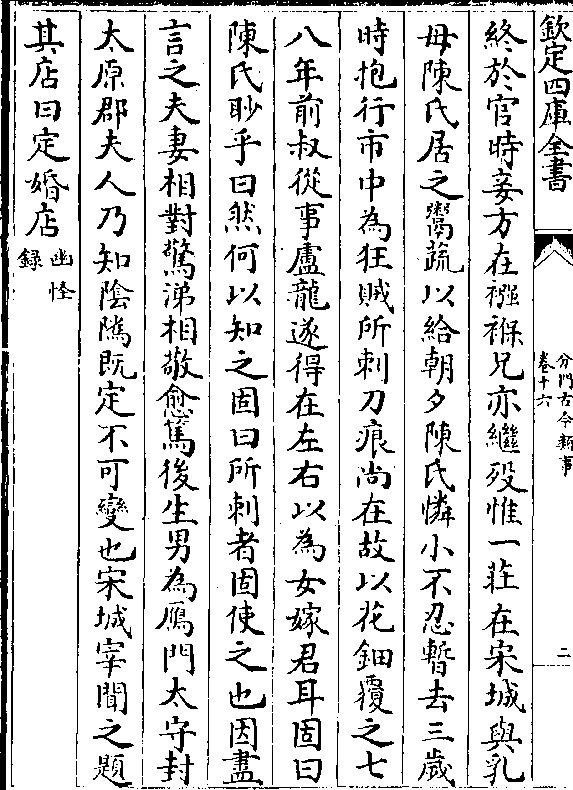 欽定四庫全書
分門古今類事
卷十六
二
終於官時妾方在襁褓兄亦繼歿惟一莊在宋城與乳
母陳氏居之鬻蔬以給朝夕陳氏憐小不忍暫去三歲
時抱行市中為狂賊所刺刀痕尚在故以花鈿覆之七
八年前叔從事盧龍遂得在左右以為女嫁君耳固曰
陳氏眇乎曰然何以知之固曰所刺者固使之也因盡
言之夫妻相對驚涕相敬愈篤後生男為鴈門太守封
太原郡夫人乃知陰隲既定不可變也宋城宰聞之題
其店曰定婚店
幽怪
錄